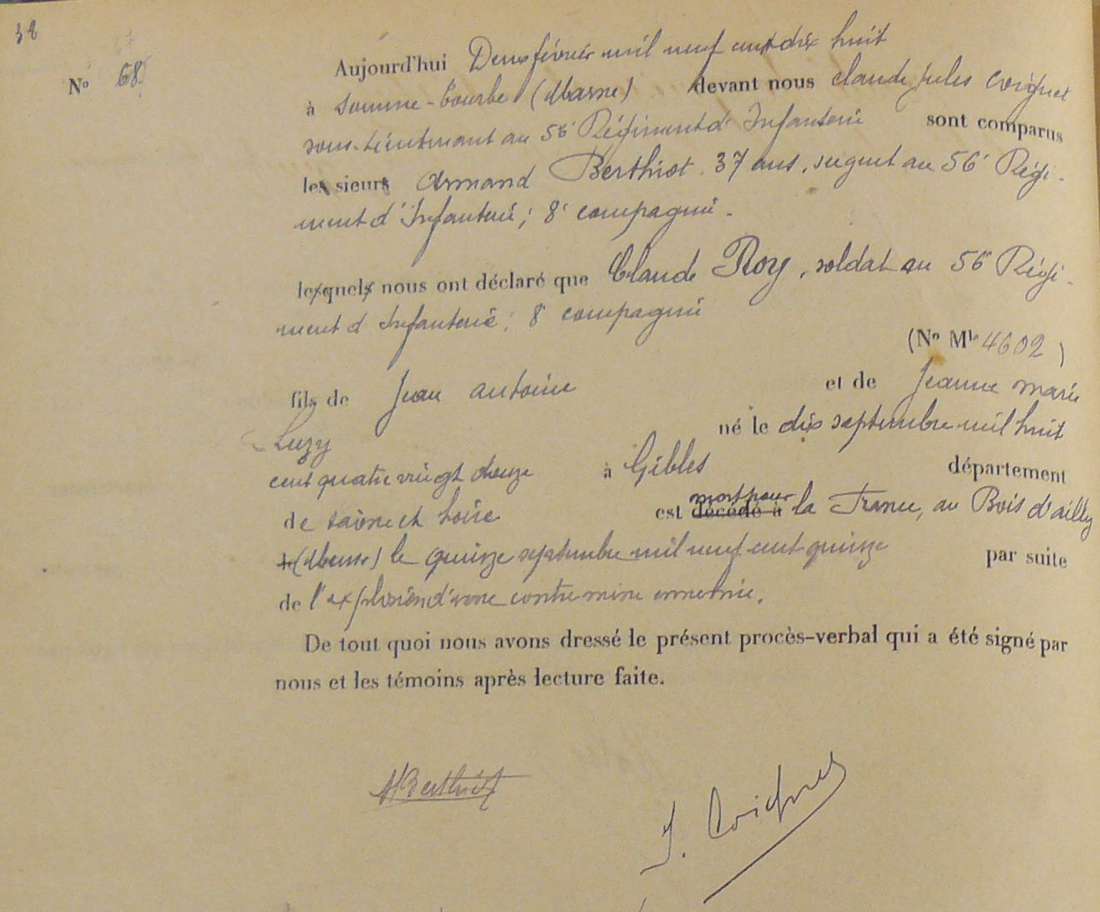 38
Nº 68
Aujourd'hui Deux février mil neuf cent dix huit
à Somme-Tourbe (Marne) devant nous Claude, Jules Coignet
sous-Lieutenant au 56e Régiment d'Infanterie sont comparus
les sieurs Armand Berthiot. 37 ans, sergent au 56e Régi-
ment d'Infanterie; 8e compagnie.
lesquels nous ont déclaré que Claude Roy, soldat au 56e Régi-
ment d'Infanterie; 8e compagnie
(Nº Mle 4602)
fils de Jean Antoine et de Jeanne Marie
Luzy né le dix septembre mil huit
cent quatre vingt douze à Gibles département
de Saône et Loire est décédé à mort pour la France, au Bois d'Ailly
(Meuse) le quinze septembre mil neuf cent quinze par suite
de l'explosion d'une contre mine ennemie.
De tout quoi nous avons dressé le présent procès-verbal qui a été signé par
nous et les témoins après lecture faite.
ABerthiot
J. Coignet